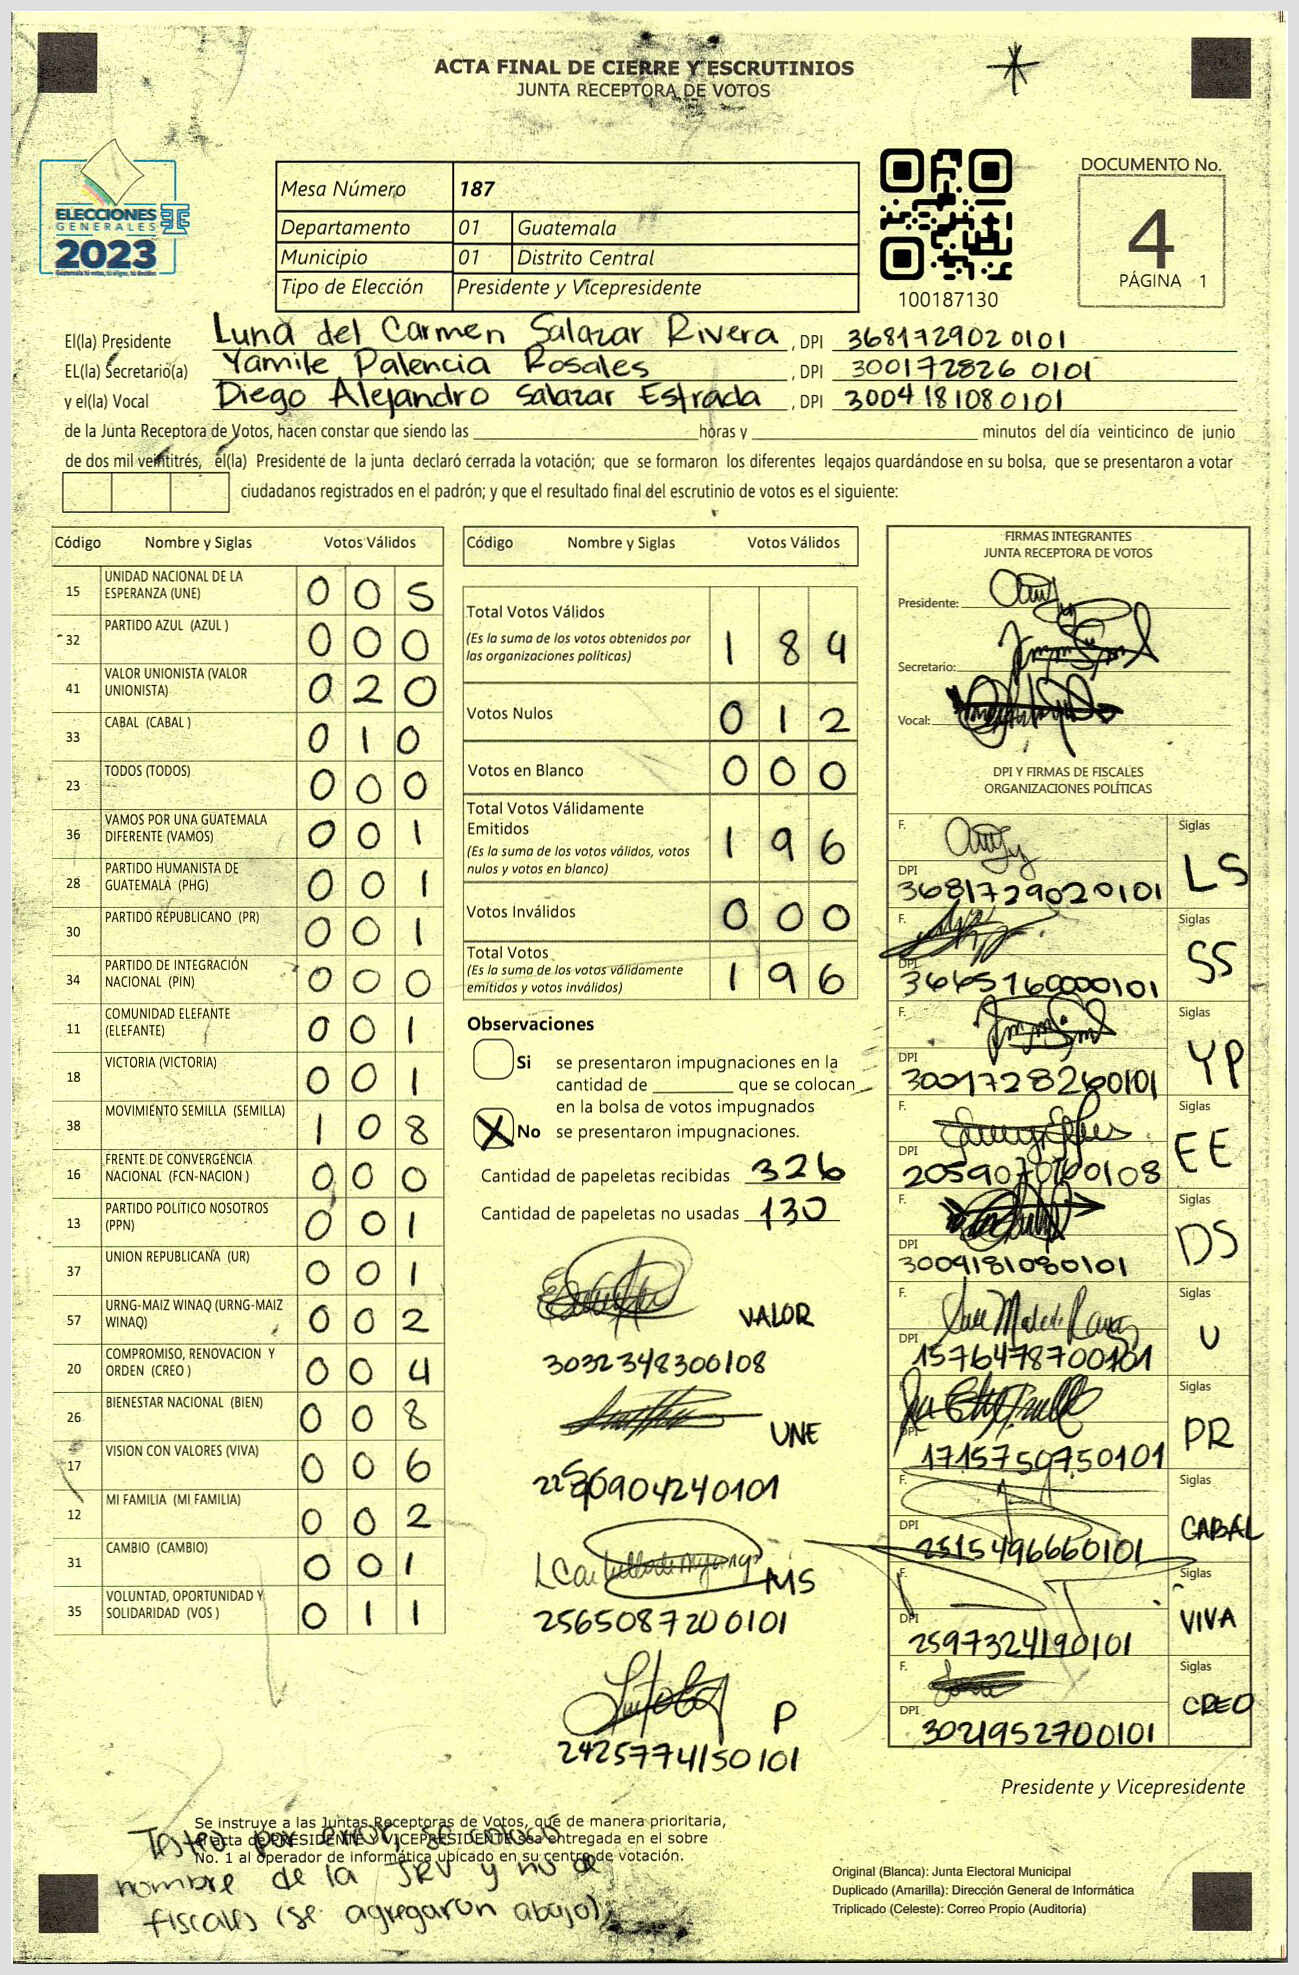 ACTA FINAL DE CIERRE Y ESCRUTINIOS
JUNTA RECEPTORA DE VOTOS
ELECCIONES
GENERALES
2023
Mesa Número 187
Departamento 01 Guatemala
Municipio 01 Distrito Central
Tipo de Elección Presidente y Vicepresidente
100187130
DOCUMENTO No.
4
PÁGINA 1
El(la) Presidente Luna del Carmen Salazar Rivera, DPI 368172902 0101
EL(la) Secretario(a) Yamile Palencia Rosales, DPI 300172826 0101
y el(la) Vocal Diego Alejandro Salazar Estrada, DPI 3004181080101
de la Junta Receptora de Votos, hacen constar que siendo las ____ horas y ____ minutos del día veinticinco de junio
de dos mil veintitrés, el(la) Presidente de la junta declaró cerrada la votación; que se formaron los diferentes legajos guardándose en su bolsa, que se presentaron a votar
ciudadanos registrados en el padrón; y que el resultado final del escrutinio de votos es el siguiente:
Código Nombre y Siglas Votos Válidos
15 UNIDAD NACIONAL DE LA ESPERANZA (UNE) 0 0 5
32 PARTIDO AZUL (AZUL ) 0 0 0
41 VALOR UNIONISTA (VALOR UNIONISTA) 0 2 0
33 CABAL (CABAL ) 0 1 0
23 TODOS (TODOS) 0 0 0
36 VAMOS POR UNA GUATEMALA DIFERENTE (VAMOS) 0 0 1
28 PARTIDO HUMANISTA DE GUATEMALA (PHG) 0 0 1
30 PARTIDO REPUBLICANO (PR) 0 0 1
34 PARTIDO DE INTEGRACIÓN NACIONAL (PIN) 0 0 0
11 COMUNIDAD ELEFANTE (ELEFANTE) 0 0 1
18 VICTORIA (VICTORIA) 0 0 1
38 MOVIMIENTO SEMILLA (SEMILLA) 1 0 8
16 FRENTE DE CONVERGENCIA NACIONAL (FCN-NACION ) 0 0 0
13 PARTIDO POLITICO NOSOTROS (PPN) 0 0 1
37 UNION REPUBLICANA (UR) 0 0 1
57 URNG-MAIZ WINAQ (URNG-MAIZ WINAQ) 0 0 2
20 COMPROMISO, RENOVACION Y ORDEN (CREO ) 0 0 4
26 BIENESTAR NACIONAL (BIEN) 0 0 8
17 VISION CON VALORES (VIVA) 0 0 6
12 MI FAMILIA (MI FAMILIA) 0 0 2
31 CAMBIO (CAMBIO) 0 0 1
35 VOLUNTAD, OPORTUNIDAD Y SOLIDARIDAD (VOS ) 0 1 1
Código Nombre y Siglas Votos Válidos
Total Votos Válidos 1 8 4
(Es la suma de los votos obtenidos por
las organizaciones políticas)
Votos Nulos 0 1 2
Votos en Blanco 0 0 0
Total Votos Válidamente
Emitidos 1 9 6
(Es la suma de los votos válidos, votos
nulos y votos en blanco)
Votos Inválidos 0 0 0
Total Votos 1 9 6
(Es la suma de los votos válidamente
emitidos y votos inválidos)
Observaciones
Si se presentaron impugnaciones en la
cantidad de ____ que se colocan
en la bolsa de votos impugnados
X No se presentaron impugnaciones.
Cantidad de papeletas recibidas 326
Cantidad de papeletas no usadas 130
VALOR
3032348300108
UNE
904240101
MS
2565087200101
P
2425774150101
FIRMAS INTEGRANTES
JUNTA RECEPTORA DE VOTOS
Presidente:
Secretario:
Vocal:
DPI Y FIRMAS DE FISCALES
ORGANIZACIONES POLÍTICAS
F. Siglas LS
DPI 3681729020101
F. Siglas SS
DPI
F. Siglas YP
DPI 3001728260101
F. Siglas EE
DPI
F. Siglas DS
DPI 3004181080101
F. Siglas U
DPI 1576478700101
F. Siglas PR
DPI 1715750750101
F. Siglas CABAL
DPI 2515496660101
F. Siglas VIVA
DPI 2597324190101
F. Siglas CREO
DPI 3021952700101
Presidente y Vicepresidente
Se instruye a las Juntas Receptoras de Votos, que de manera prioritaria,
el acta de PRESIDENTE Y VICEPRESIDENTE sea entregada en el sobre
No. 1 al operador de informática ubicado en su centro de votación.
Testeo por error, se coloco
nombre de la JRV y no de
fiscales (se agregaron abajo)
Original (Blanca): Junta Electoral Municipal
Duplicado (Amarilla): Dirección General de Informática
Triplicado (Celeste): Correo Propio (Auditoría)